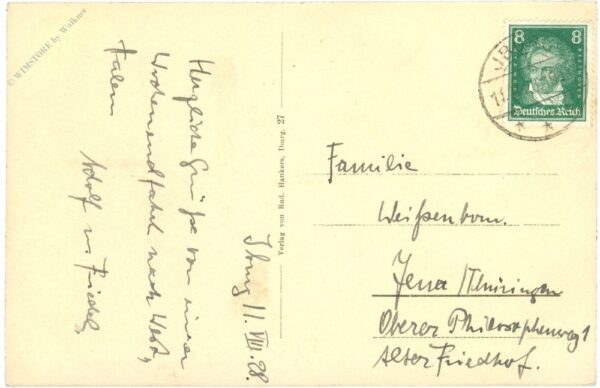 © WIMSTORE by Walkner
Iburg 11. VIII. 28.
Herzliche Grüße von einer
Wochenendfahrt nach West,
falem
Adolf u. Friedel,
Verlag von Rud. Hankers, Iburg. 27
8 8
BEETHOVEN
Deutsches Reich
Familie
Weißenborn.
Jena /Thüringen
Oberer Philosophenweg 1
Alter Friedhof.